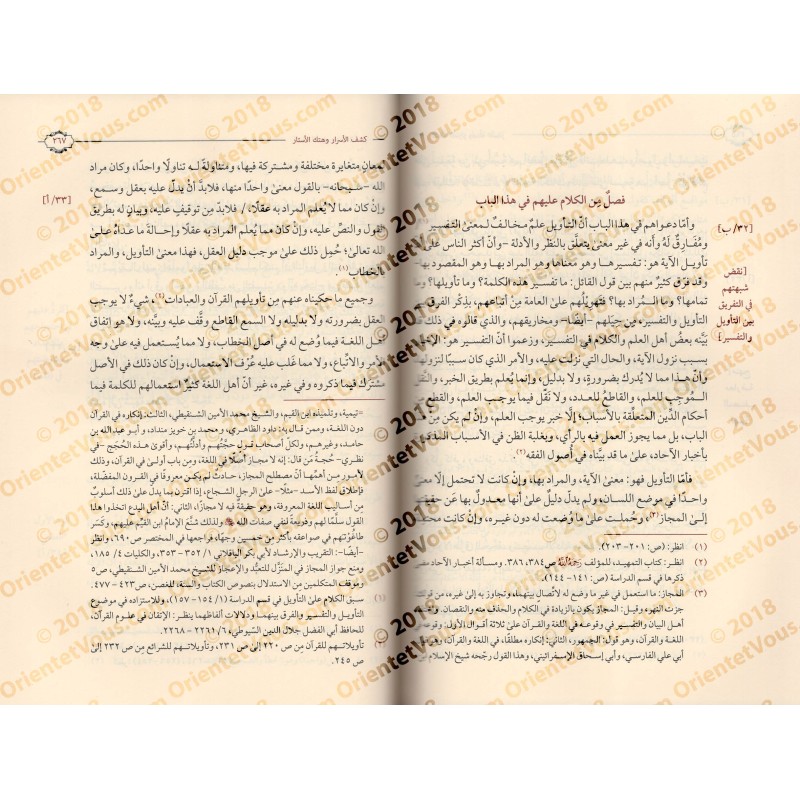 فصلٌ مِن الكلام عليهم في هذا الباب
[٣٢/ب]
وأمّا دعواهم في هذا الباب أنّ التأويل علمٌ مخالفٌ لمعنى التفسير
ومُفارِقٌ لهُ وأنه في غير معنىً يتعلَّق بالنظر والأدلة –وأنّ أكثر الناس على
[نقض
تأويـل الآية هو: تـفسيرهـا وهو معناها وهو المراد بها وهو المقصود بها
شبهتهم
وقد فرّق كثيرٌ منهم بين قول القائل: ما تفسير هذه الكلمة؟ وما تأويلها؟ وما
في التفريق
تمامها؟ وما المُراد بها؟ فتهويلُهم على العامة مِن أتباعهم، بذِكْر الفرق
بين التأويل
التأويل والتفسير، مِن حِيَلهم –أيضًا– ومخاريقهم، والذي قالوه في ذلك
والتفسير]
بيَّنه بعضُ أهل العلم والكلام في التفسير، وزعموا أنّ التفسيـر هو: الإخبـ
بسبب نزول الآية، والحال التي نزلت عليه، والأمر الذي كان سببًا لنزول
وأنّ هـذا مما لا يُدرك بضرورةٍ، ولا بدليلٍ، وإنما يُعلم بطريق الخبر، والنقل
المُوجب للعلم، والقاطع للعـدد، ولا نقْل فيما يوجب العلم، والقطع
أحكام الدِّين المتعلِّقة بالأسباب؛ إلّا خبر يوجب العلم، وإنْ لم يكن مِن هذا
الباب، بل مما يجوز العمل فيه بالرأي، وبغلبة الظن في الأسباب المنقولة
بأخبار الآحاد، على ما قد بيَّناه في أصول الفقه(٢).
فأمّا التأويل فهو: معنىٰ الآية، والمراد بها، وإنْ كانت لا تحتمل إلّا معنىً
واحـدًا في موضع اللسـان، ولم يدل دليلٌ علىٰ أنها معـدولٌ بها عَن حقيقتها
إلىٰ المجاز(٣)، وحُملت علىٰ ما وُضعت له دون غيره، وإنْ كانت محتملة
(١) انظر: (ص: ٢٠١-٢٠٣).
(٢) انظر: كتاب التمهيد، للمؤلف رحمه الله ص٣٨٤، ٣٨٦، ومسألة أخبار الآحاد
ذكرها في قسم الدراسة (ص: ١٤١-١٤٤).
(٣) المجاز: ما استعمل في غير ما وضع له لاتّصال بينهما، وتجاوز به إلى غيره، من قولك
جزت النهر، وقيل: المجاز يكون بالزيادة في الكلام والحذف منه والنقصان. واختلف
أهل البيان والتفسير في وقوعه في اللغة والقرآن على ثلاثة أقوال: الأول: وقوعه في
اللغة والقرآن، وهو قول: الجمهور، الثاني: إنكاره مطلقًا، في اللغة والقرآن، وهو
أبي علي الفارسي، وأبي إسحاق الإسفرائيني، وهذا القول رجّحه شيخ الإسلام بن
كشف الأسرار وهتك الأستار
٣٦٧
لمعانٍ متغايرة مختلفة ومشتركة فيها، ومتناوِلةً لـه تناولًا واحدًا، وكان مراد
[٣٣/أ]
الله –سبحانه– بالقول معنىً واحدًا منها، فلابدَّ أنْ يدلّ عليه بعقل وسمع،
وإنْ كان مما لا يُعلم المراد به عقلًا، / فلابدّ مِن توقيفٍ عليه، وبيانٍ له بطريق
القول والنص عليه، وإنْ كان مما يُعلم المراد به عقلًا وإحالـة ما عداه علىٰ
الله تعالىٰ؛ حُمِل ذلك علىٰ موجب دليل العقل، فهذا معنىٰ التأويل، والمراد
بالخطاب(١).
وجميع ما حكيناه عنهم مِن تأويلهم القرآن والعبادات(٢)، شيءٌ لا يوجب
العقل بضرورته ولا بدليله ولا السمع القاطع وقَّف عليه وبيَّنه، ولا هو اتفاق
أهل اللغة علىٰ أنه فيما وُضع له في أصل الخطاب، ولا مما يُستعمل فيه علىٰ
الأمر والاتّباع، ولا مما غَلب عليه عُرْف الاستعمال، وإنْ كان ذلك في الأصل
مشترَك فيما ذكروه وفي غيره، غير أنّ أهل اللغة كثيرٌ استعمالهم للكلمة فيما
=تيمية، وتلميذه ابن القيم، والشيخ محمد الأمين الشنقيطي، الثالث: إنكاره في القرآن
دون اللغة، وممن قال به: داود الظاهري، ومحمد بن خويز منداد، وأبو عبد الله بن
حامد، وغيرهم، ولكل أصحاب قول حجّتهم وأدلّتهم، وأوفق هذه الحُجَج –في
نظري– حُجةُ مَن قال: إنه لا مجاز أصلًا في اللغة، ومِن باب أولىٰ في القرآن، وذلك
لأمور مِن أهمِّها أنّ مصطلح المجاز، حادثٌ لم يكن معروفًا في القرون المفضّلة،
فإطلاق لفظ الأسد –مثلًا– على الرجل الشجاع، إذا اقترن بما يدل على ذلك أسلوبٌ
مِن أساليب اللغة المعروفة، وهو حقيقة فيه لا مجازًا، الثاني: أنّ أهل البدع اتخذوا هذا
القول سلَّمًا لهم وذريعةً لنفي صفات الله ، ولذلك شنّع الإمام ابن القيم عليهم، وكسر
طاغوتهم في صواعقه بأكثر مِن خمسين وجهًا، فراجعه في مختصر ص٦٩٠، وانظر
–أيضًا–: التقريب والإرشاد لأبي بكر الباقلاني ١/ ٣٥٢ - ٣٥٣، والكليات ٤/ ١٨٥،
ومنع جواز المجاز في المنزّل للتعبّد والإعجاز للشيخ محمد الأمين الشنقيطي، ص٥،
وموقف المتكلمين مِن الاستدلال بنصوص الكتاب والسنة، للغصن، ص٤٢٣ - ٤٧٧.
(١) سبق الكلام على التأويل في قسم الدراسة (١/ ١٥٤ - ١٥٧)، وللاستزاده في موضوع
التأويل والتفسير والفرق بينهما ودلالات ألفاظهما ينظر: الإتقان في علوم القرآن،
للحافظ أبي الفضل جلال الدين السّيوطي، ٦/ ٢٢٦١ - ٢٢٦٨.
(٢) تأويلاتهم للقرآن مِن ص ٢٢٠ إلىٰ ص ٢٣١، وتأويلاتهم للشرائع مِن ص ٢٣٢ إلىٰ
ص ٢٤٥.
© 2018
OrientetVous.com